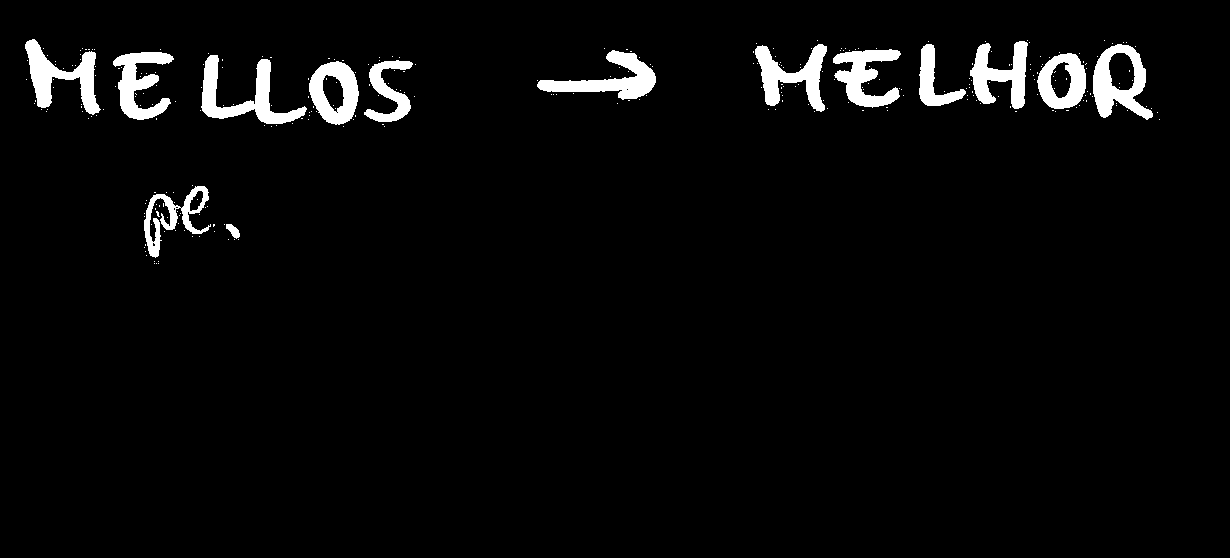 MELLOS → MELHOR
pe.